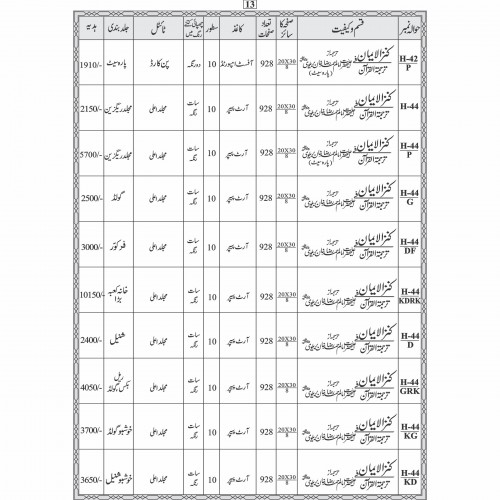 13
حوالہ نمبر قسم و کیفیت صفحے کا سائز تعداد صفحات کاغذ سطور چھپائی کتنے رنگ میں ٹائٹل جلد بندی ہدیہ
H-42 P کنز الایمان فی ترجمۃ القرآن (پارہ سیٹ) 20X30/8 928 آفسٹ امپورٹڈ 10 دو رنگہ پن کارڈ پارہ سیٹ 1910/-
H-44 کنز الایمان فی ترجمۃ القرآن 20X30/8 928 آرٹ پیپر 10 سات رنگہ مجلد اعلیٰ مجلد ریگزین 2150/-
H-44 P کنز الایمان فی ترجمۃ القرآن (پارہ سیٹ) 20X30/8 928 آرٹ پیپر 10 سات رنگہ مجلد اعلیٰ مجلد ریگزین 5700/-
H-44 G کنز الایمان فی ترجمۃ القرآن 20X30/8 928 آرٹ پیپر 10 سات رنگہ مجلد اعلیٰ گولڈ 2500/-
H-44 DF کنز الایمان فی ترجمۃ القرآن 20X30/8 928 آرٹ پیپر 10 سات رنگہ مجلد اعلیٰ فلر کوّر 3000/-
H-44 KDRK کنز الایمان فی ترجمۃ القرآن 20X30/8 928 آرٹ پیپر 10 سات رنگہ مجلد اعلیٰ خانہ کعبہ بڑا 10150/-
H-44 D کنز الایمان فی ترجمۃ القرآن 20X30/8 928 آرٹ پیپر 10 سات رنگہ مجلد اعلیٰ شنیل 2400/-
H-44 GRK کنز الایمان فی ترجمۃ القرآن 20X30/8 928 آرٹ پیپر 10 سات رنگہ مجلد اعلیٰ بکس گولڈ 4050/-
H-44 KG کنز الایمان فی ترجمۃ القرآن 20X30/8 928 آرٹ پیپر 10 سات رنگہ مجلد اعلیٰ خوشبو گولڈ 3700/-
H-44 KD کنز الایمان فی ترجمۃ القرآن 20X30/8 928 آرٹ پیپر 10 سات رنگہ مجلد اعلیٰ خوشبو شنیل 3650/-